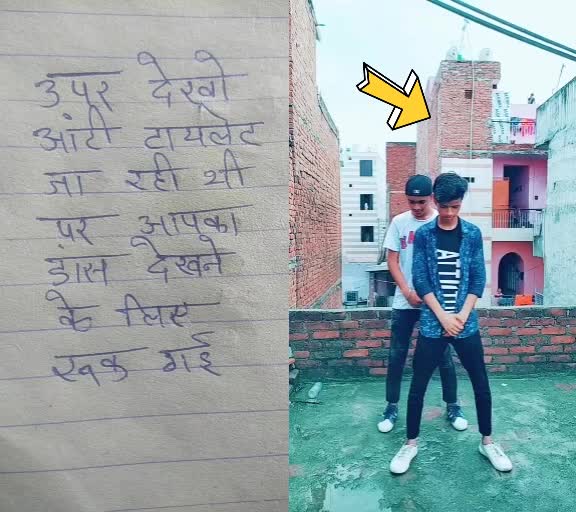 उपर देखो
आंटी टायलेट
जा रही थी
पर आपका
डांस देखने
के लिए
रूक गई
ATTITUDE